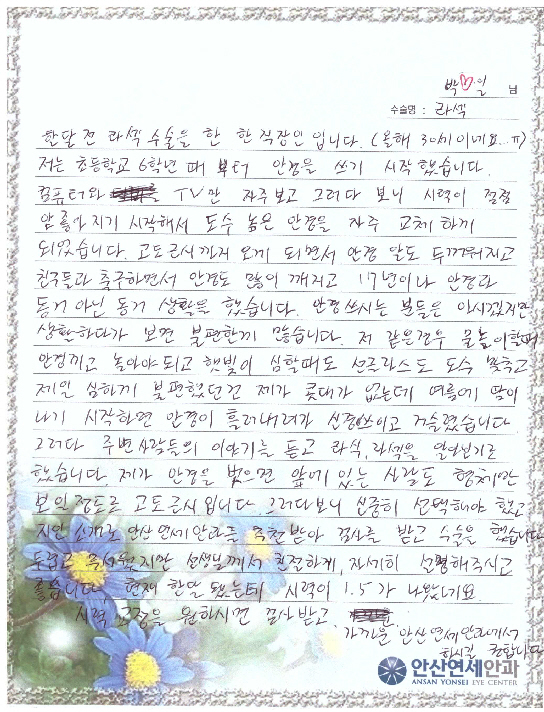 박♡일 님
수술명 : 라섹
한달 전 라섹 수술을 한 한 직장인 입니다. (올해 30세이네요..ㅠ)
저는 초등학교 6학년 때 부터 안경을 쓰기 시작했습니다.
컴퓨터와 TV만 자주보고 그러다 보니 시력이 점점
안 좋아지기 시작해서 도수 높은 안경을 자주 교체 하게
되었습니다. 고도근시까지 오게 되면서 안경 알도 두꺼워지고
친구들과 축구하면서 안경도 많이 깨지고 17년이나 안경과
동거 아닌 동거 생활을 했습니다. 안경쓰시는 분들은 아시겠지만
생활하다가 보면 불편한게 많습니다. 저 같은경우 물놀이할때
안경끼고 놀아야되고 햇빛이 심할때도 선글라스도 도수 맞추고
제일 심하게 불편했던건 제가 콧대가 없는데 여름에 땀이
나기 시작하면 안경이 흘러내려가 신경쓰이고 거슬렸습니다
그러다 주변사람들의 이야기를 듣고 라식, 라섹을 알아보기로
했습니다. 제가 안경을 벗으면 앞에 있는 사람도 형체만
보일정도로 고도근시입니다 그러다보니 신중히 선택해야 했고
지인 소개로 안산연세안과를 추천받아 검사를 받고 수술을 했습니다
두렵고 무서웠지만 선생님께서 친절하게, 자세히 설명해주시고
좋습니다 현재 한달 됐는데 시력이 1.5가 나왔네요.
시력 교정을 원하시면 검사받고
가까운 안산연세안과에서
하시길 권합니다
안산연세안과
ANSAN YONSEI EYE CENTER